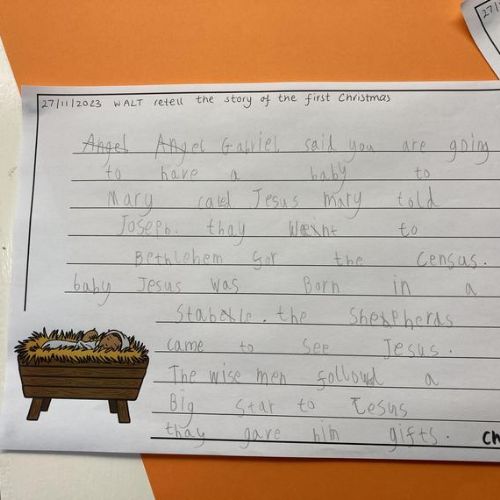 27/11/2023 WALT retell the story of the first Christmas
Angel Angel Gabriel said you are going
to have a baby to
Mary caled Jesus mary told
Joseph. thay Weint to
Bethlehem for the census.
baby Jesus was Born in a
Stable. the Shepherds
came to see Jesus.
The wise men followd a
Big Star to Jesus
thay gave him gifts.